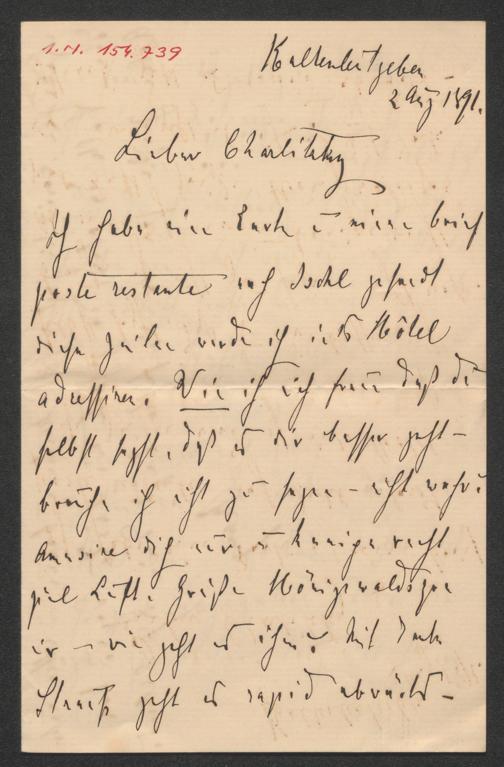 I.N. 154.739
Kaltenleutgeben
2 Aug 1891.
Lieber Charlitzky
Ich habe eine Karte u einen brief
poste restante nach Ischl gesandt
diese Zeilen werde ich ins Hôtel
adressiren. Wie ich mich freue daß du
selbst sagst, daß es dir besser geht –
brauche ich nicht zu sagen – nicht wahr?
Amusire dich nur u kneipe recht
viel Luft. Grüße
mir – wie geht es ihm? Mit
geht es rapid abwärts –